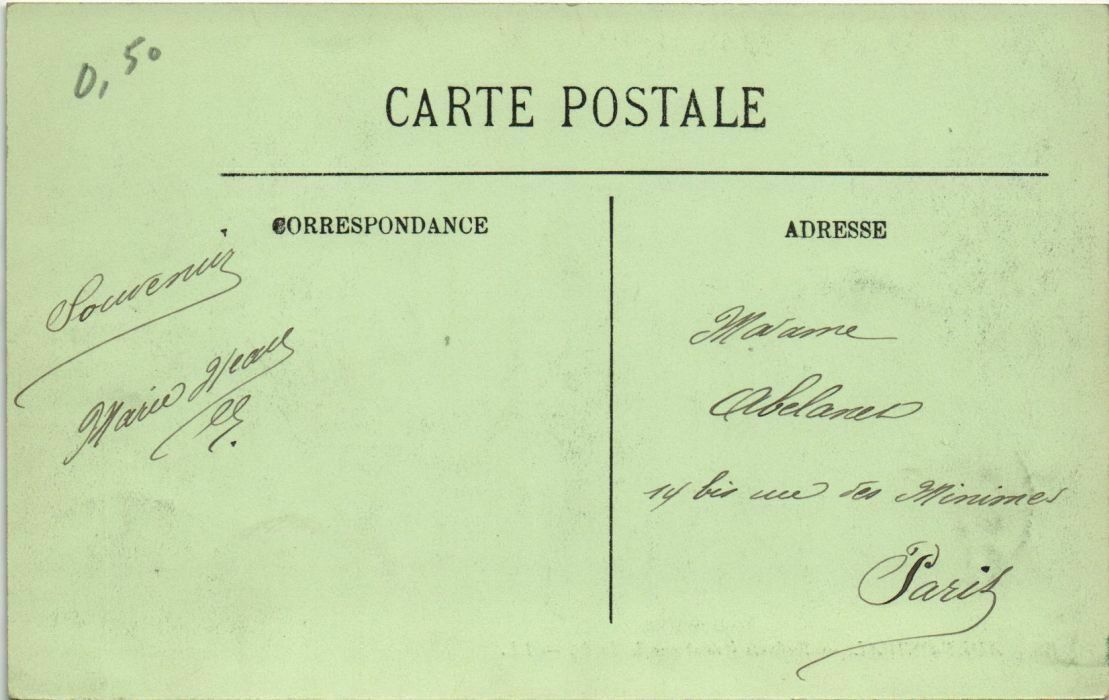 0,50
CARTE POSTALE
CORRESPONDANCE
ADRESSE
Souvenir
Marie
Madame
Abelanet
14 bis rue des Minimes
Paris